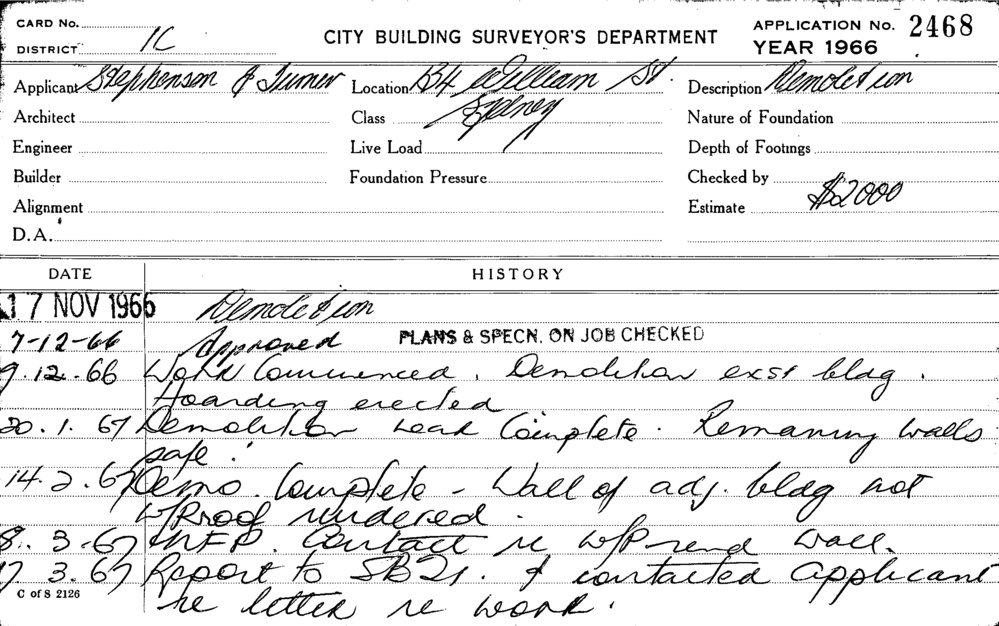 CARD No.
DISTRICT 1C
CITY BUILDING SURVEYOR'S DEPARTMENT
APPLICATION No. 2468
YEAR 1966
Applicant Stephenson & Turner Location 134 William St. Description Demolition
Architect Class Sydney Nature of Foundation
Engineer Live Load Depth of Footings
Builder Foundation Pressure Checked by
Alignment Estimate $2000
D.A.
DATE HISTORY
17 NOV 1966 Demolition
7-12-66 Approved PLANS & SPECN. ON JOB CHECKED
9.12.66 Work Commenced. Demolition exst bldg.
Hoarding erected
20.1.67 Demolition Complete. Remaining walls
safe.
14.2.67 Demo. Complete - Wall of adj. bldg not
W/Proof rendered.
8.3.67 Contact re W/P rend wall.
17.3.67 Report to & contacted applicant
re letter re work.
C of S 2126